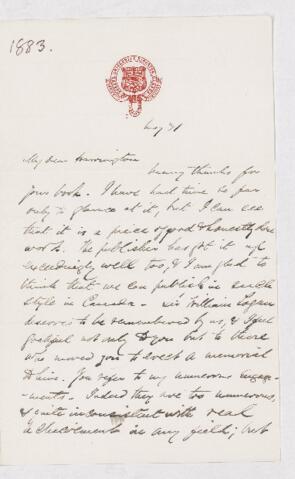 1883.
May 31
My dear Harrington
Many thanks for
your book. I have had time so far
only to glance at it, but I can see
that it is a piece of good & honestly done
work. The publisher has got it up
exceedingly well too, & I am glad to
think that we can publish in such
style in Canada. Sir William Logan
deserves to be remembered by us, & I feel
grateful not only to you but to those
who moved you to erect a memorial
to him. You refer to my numerous engage-
ments. Indeed they are too numerous,
& quite inconsistent with real
achievement in any field; but